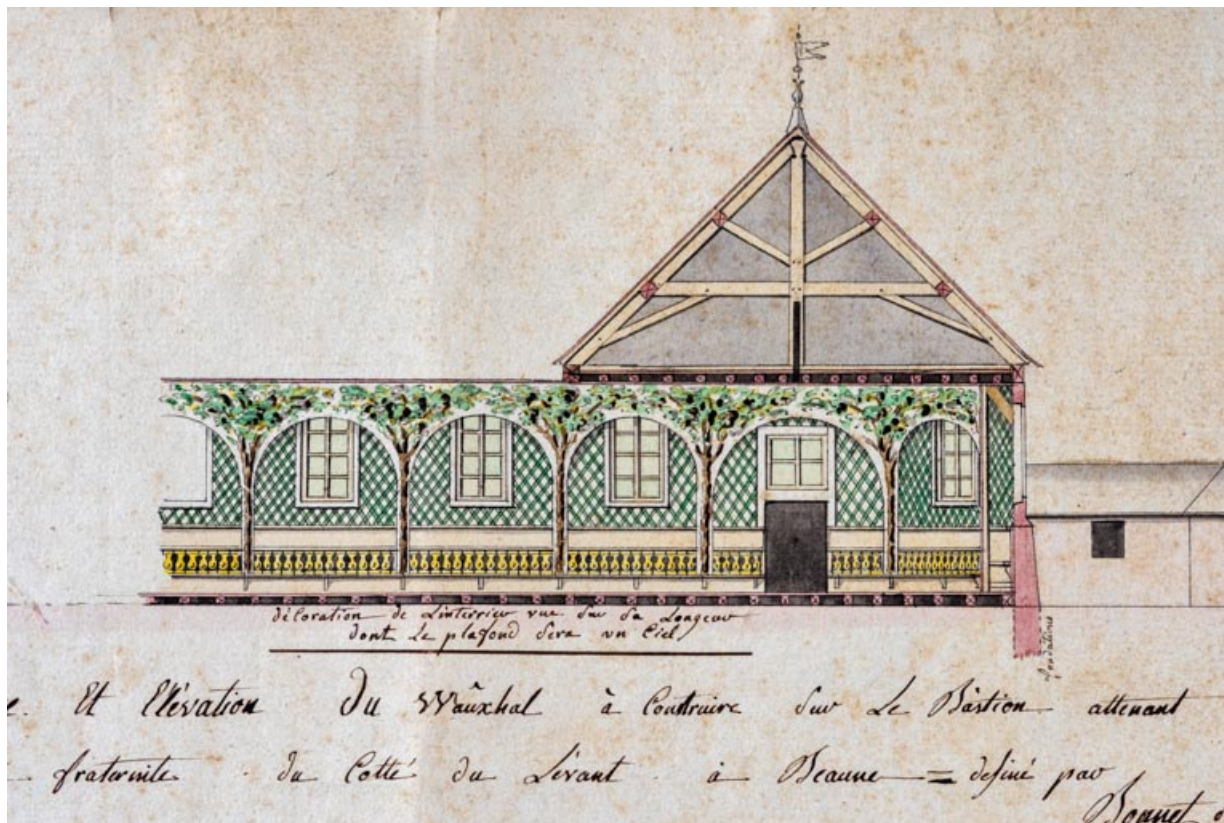 décoration de Linterrieur vue Sur Sa Longeur
dont Le plafond Sera un Ciel
fondations
Et Elévation Du Wauxhal à Construire Sur Le Bastion attenant
fraternite du Cotté du Levant à Beaune = desiné par
Bonnet